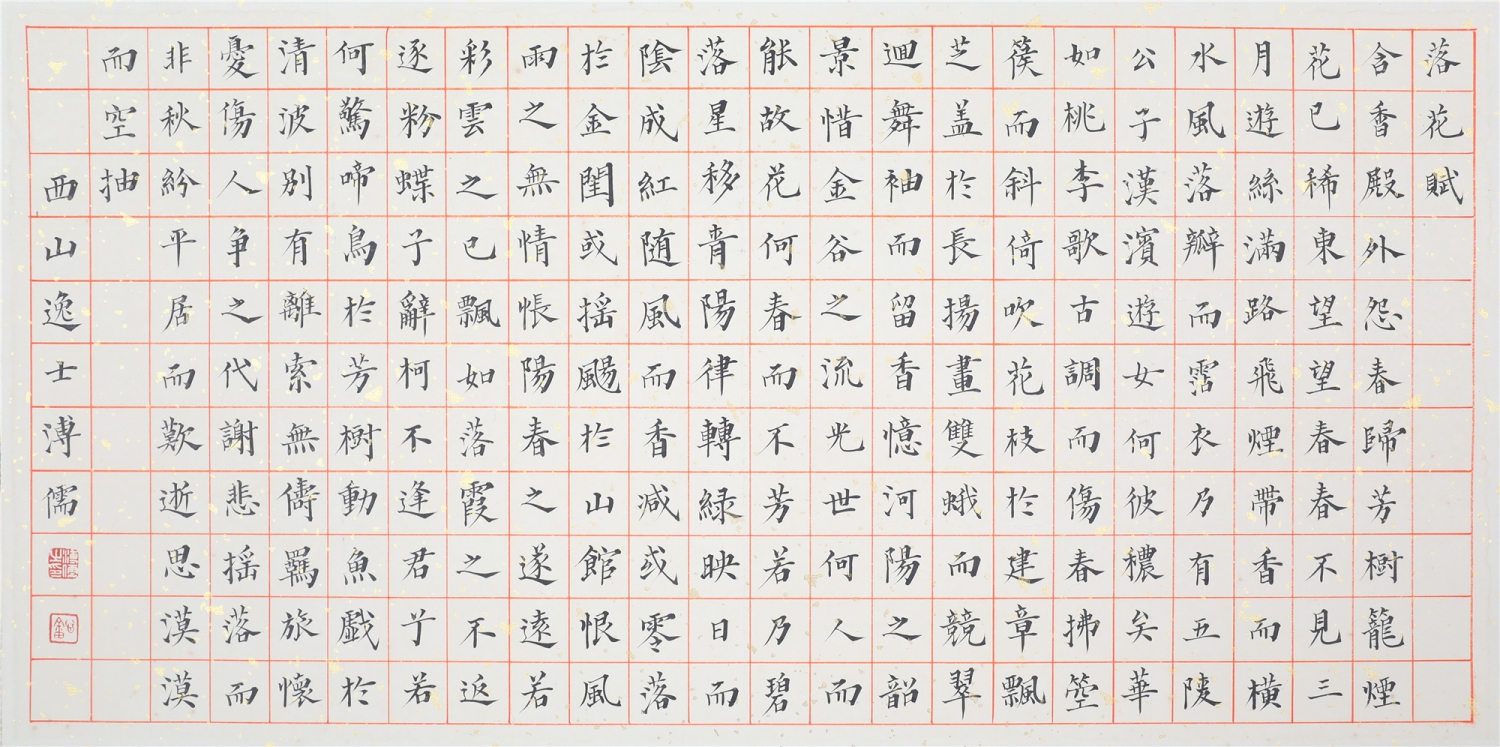 落花賦
含香殿外怨春歸芳樹籠煙
花已稀東望望春春不見三
月遊絲滿路飛煙帶香而橫
水風落瓣而霑衣乃有五陵
公子漢濱遊女何彼穠矣華
如桃李歌古調而傷春拂箜
篌而斜倚吹花枝於建章飄
芝盖於長揚畫雙蛾而競翠
迴舞袖而留香憶河陽之韶
景惜金谷之流光世何人而
能故花何春而不芳若乃碧
落星移青陽律轉緑映日而
陰成紅随風而香减或零落
於金閨或揺颺於山館恨風
雨之無情悵陽春之遂遠若
彩雲之已飄如落霞之不返
逐粉蝶子辭柯不逢君兮若
何驚啼鳥於芳樹動魚戲於
清波別有離索無儔羈旅懷
憂傷人爭之代謝悲揺落而
非秋紛平居而歎逝思漠漠
而空抽
西山逸士溥儒